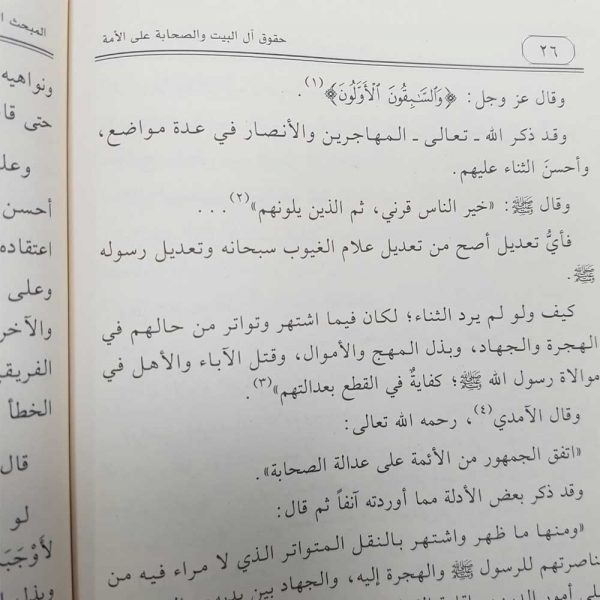 حقوق آل البيت والصحابة على الأمة
٢٦
وقال عز وجل: ﴿وَالسَّابِقُونَ الْأَوَّلُونَ﴾(١).
وقد ذكر الله ـ تعالى ـ المهاجرين والأنصار في عدة مواضع،
وأحسنَ الثناء عليهم.
وقال ﷺ: «خير الناس قرني، ثم الذين يلونهم»(٢)...
فأيُّ تعديل أصح من تعديل علام الغيوب سبحانه وتعديل رسوله
ﷺ.
كيف ولو لم يرد الثناء؛ لكان فيما اشتهر وتواتر من حالهم في
الهجرة والجهاد، وبذل المهج والأموال، وقتل الآباء والأهل في
موالاة رسول الله ﷺ؛ كفايةٌ في القطع بعدالتهم»(٣).
وقال الآمدي(٤)، رحمه الله تعالى:
«اتفق الجمهور من الأئمة على عدالة الصحابة».
وقد ذكر بعض الأدلة مما أوردته آنفاً ثم قال:
«ومنها ما ظهر واشتهر بالنقل المتواتر الذي لا مراء فيه من
ناصرتهم للرسول ﷺ والهجرة إليه، والجهاد بين يديه
المبحث
ونواهيه
حتى
وعلى
أحسن
اعتقاده
وعلى
والآخر
الخطأ
قال
لو